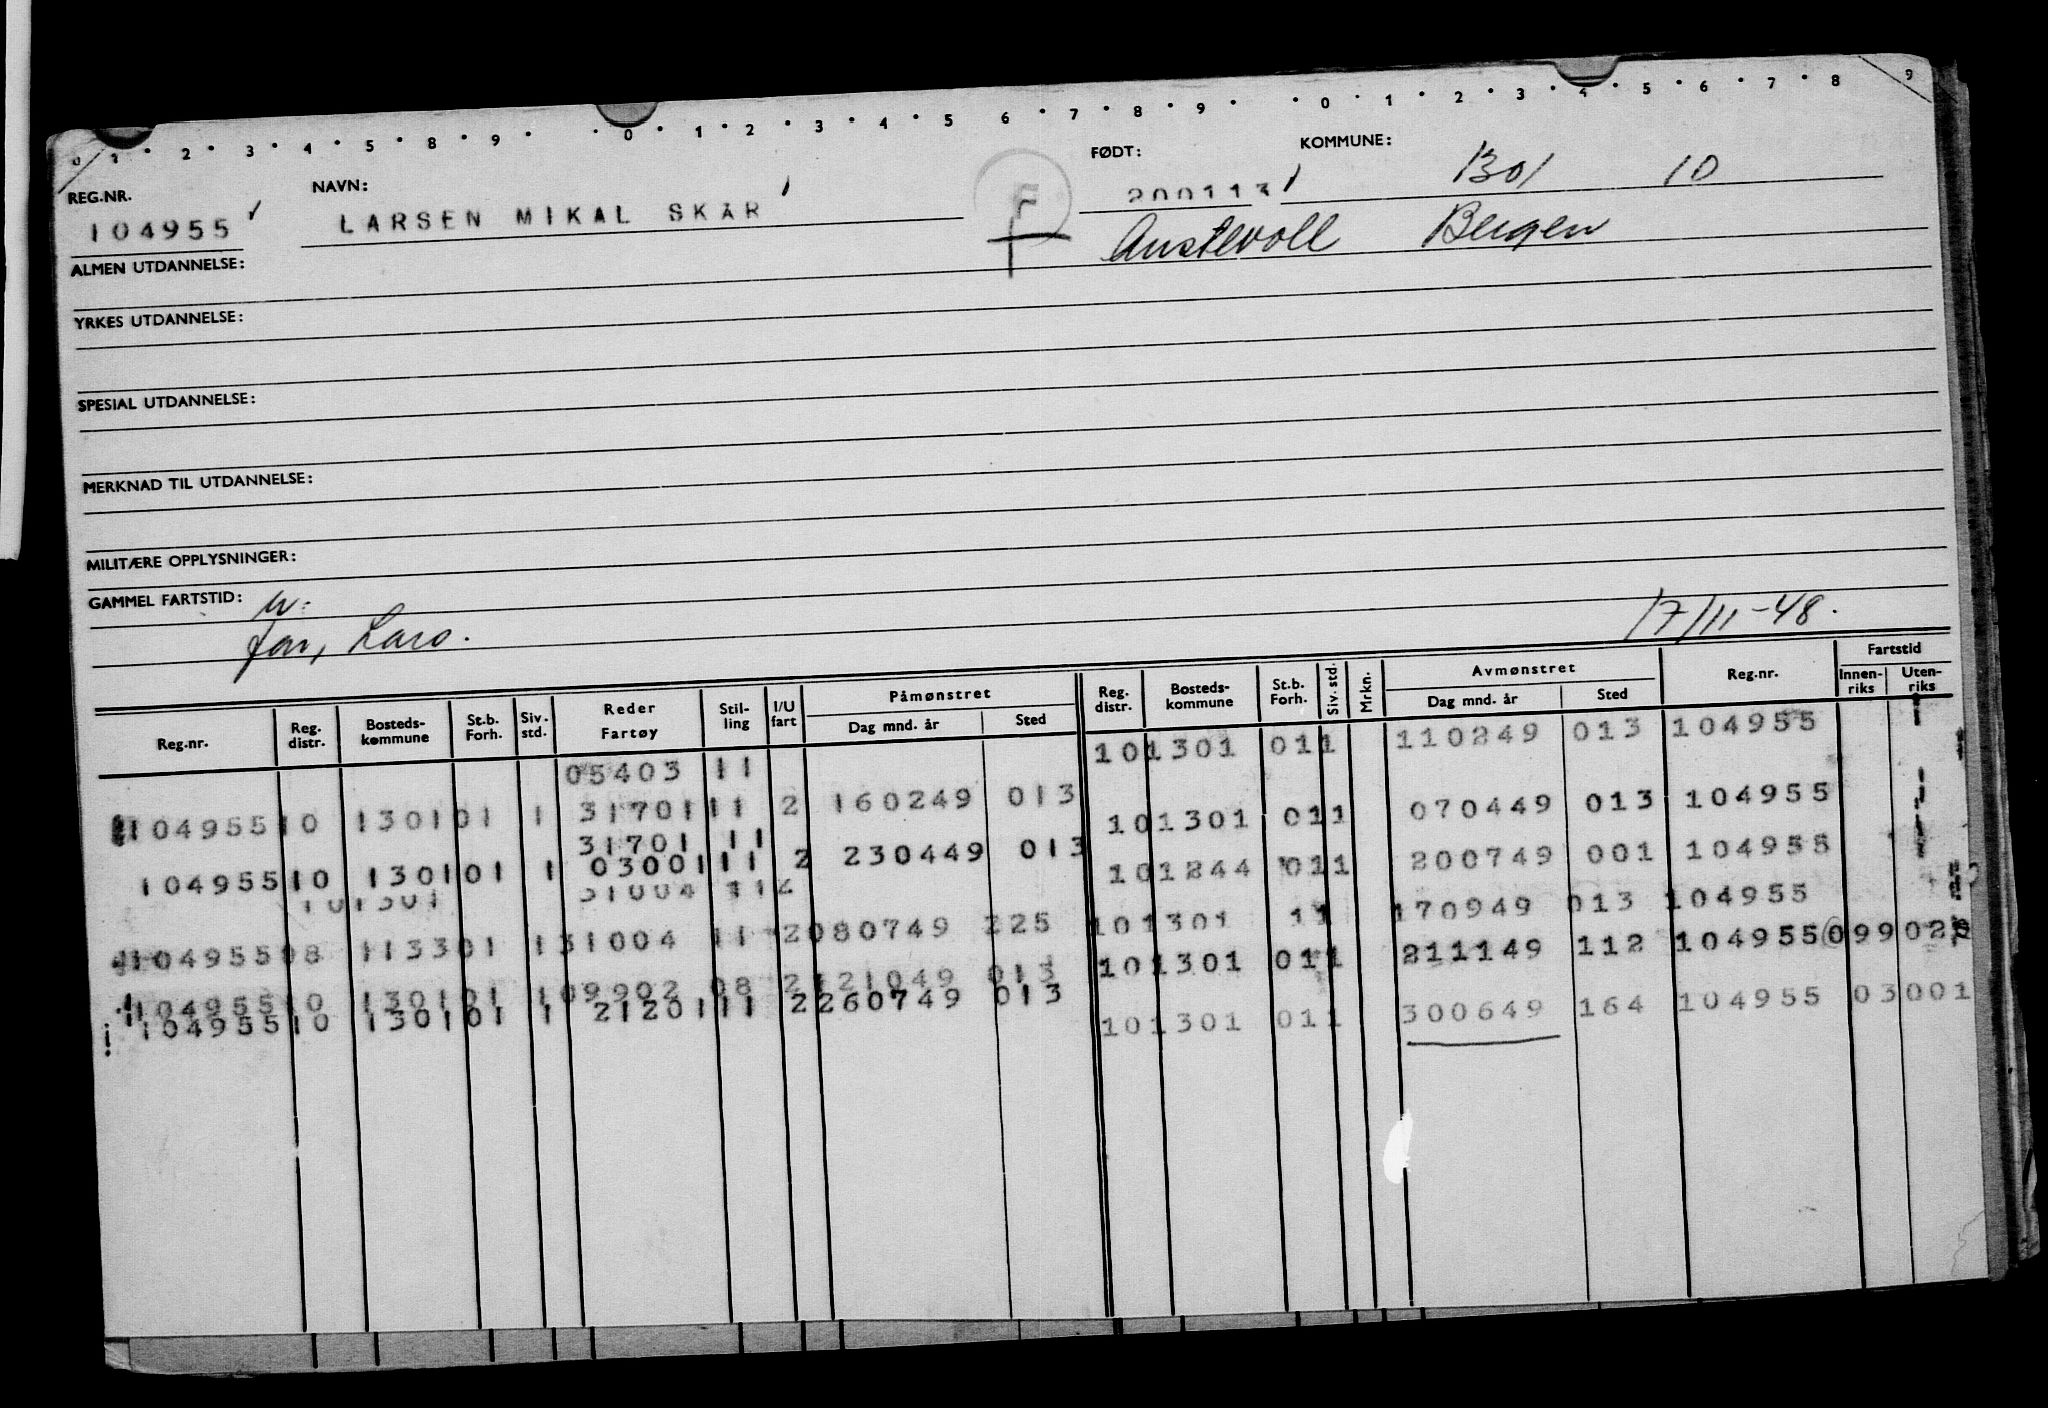 0 1 • 2 • 3 • 4 • 5 • 8 • 9 • • 0 • 1 • 2 • 3 • 4 • 5 6 • 7 • 8 • 9 • • 0 • 1 • 2 • 3 • 4 • 5 • 6 • 7 • 8 9
REG.NR. NAVN: FØDT: KOMMUNE:
104955 LARSEN MIKAL SKAR F 200113 1301 10
Austevoll Bergen
ALMEN UTDANNELSE:
YRKES UTDANNELSE:
SPESIAL UTDANNELSE:
MERKNAD TIL UTDANNELSE:
MILITÆRE OPPLYSNINGER:
GAMMEL FARTSTID:
far, Lars. 17/11-48.
Reg.nr. Reg. distr. Bosteds-kommune St.b. Forh. Siv. std. Reder Fartøy Stil-ling I/U fart Påmønstret Dag mnd. år Sted Reg. distr. Bosteds-kommune St.b. Forh. Siv. std. Mrkn. Avmønstret Dag mnd. år Sted Reg.nr. Fartstid Innen-riks Uten-riks
05403 11 101301 011 110249 013 104955
104955 10 1301 01 1 31701 11 2 160249 013 101301 011 070449 013 104955
31701 11
104955 10 1301 01 1 03001 11 2 230449 013 101244 011 200749 001 104955
101301 31004 11 2 101301 11 170949 013 104955
104955 08 1133 01 1 31004 11 2 080749 225 101301 011 211149 112 104955 099 02
104955 10 1301 01 1 09902 08 2 121049 013
104955 10 1301 01 1 21201 11 2 260749 013 101301 011 300649 164 104955 03 001